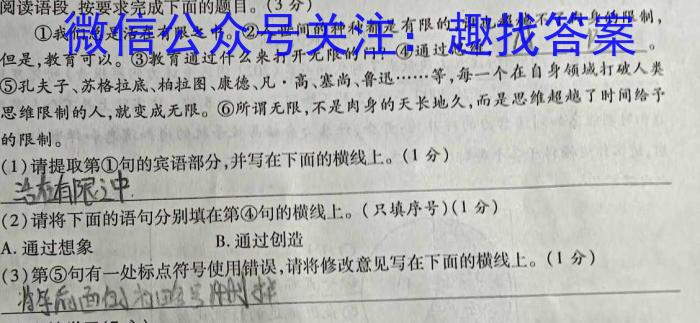 阅读语段,按要求完成下面的题目。(3分)
①我们总是活在有限之中。②世间的种种都是有限的,的限制,
微信公众号关注:趣找答案
但是,教育可以。③教育通过什么来打开无限的门?④通过
⑤孔夫子、苏格拉底、柏拉图、康德、凡·高、塞尚、鲁迅……等,每一个在自身领域打破人类
思维限制的人,就变成无限。⑥所谓无限,不是肉身的天长地久,而是思维超越了时间给予
的限制。
(1)请提取第①句的宾语部分,并写在下面的横线上。(1分)
活在有限之中
(2)请将下面的语句分别填在第④句的横线上。(只填序号)(1分)
A.通过想象 B.通过创造
(3)第⑤句有一处标点符号使用错误,请将修改意见写在下面的横线上。(1分)